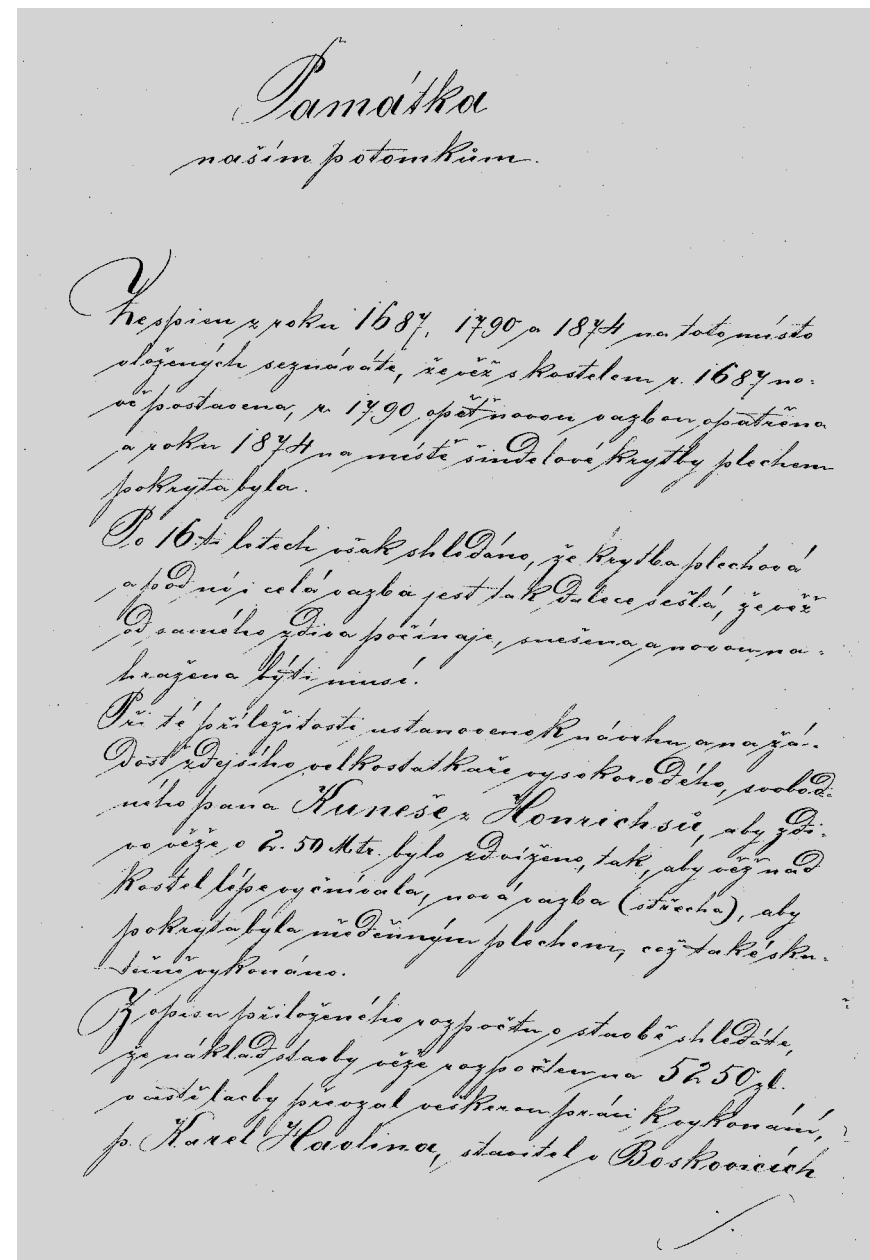 Památka
našim potomkům.
Ze spisu z roku 1687, 1790 a 1874 na toto místo
vložených seznáváte, že věž s kostelem r. 1687 no-
vě postavena, r. 1790 opět novou vazbou opatřena
a roku 1874 na místě šindelové krytby plechem
pokryta byla.
Po 16ti letech však shledáno, že krytba plechová
a pod ní i celá vazba jest tak dalece sešlá, že věž
od samého zdiva počínaje, snešena a novou na-
hražena býti musí.
Při té příležitosti ustanoveno k návrhu a na žá-
dost zdejšího velkostatkáře vysokorodého, svobod-
ného pana Kuneše z Honrichsů, aby zdi-
vo věže o 2.50 Mtr. bylo zdviženo, tak, aby věž nad
kostel lépe vyčnívala, nová vazba (střecha), aby
pokryta byla měděnným plechem, což také sku-
tečně vykonáno.
Z opisu přiloženého rozpočtu o stavbě shledáte,
že náklad stavby věže rozpočten na 5250 zl.
v kteréž práci převzal veškerou práci k vykonání,
p. Karel Havlina, stavitel v Boskovicích